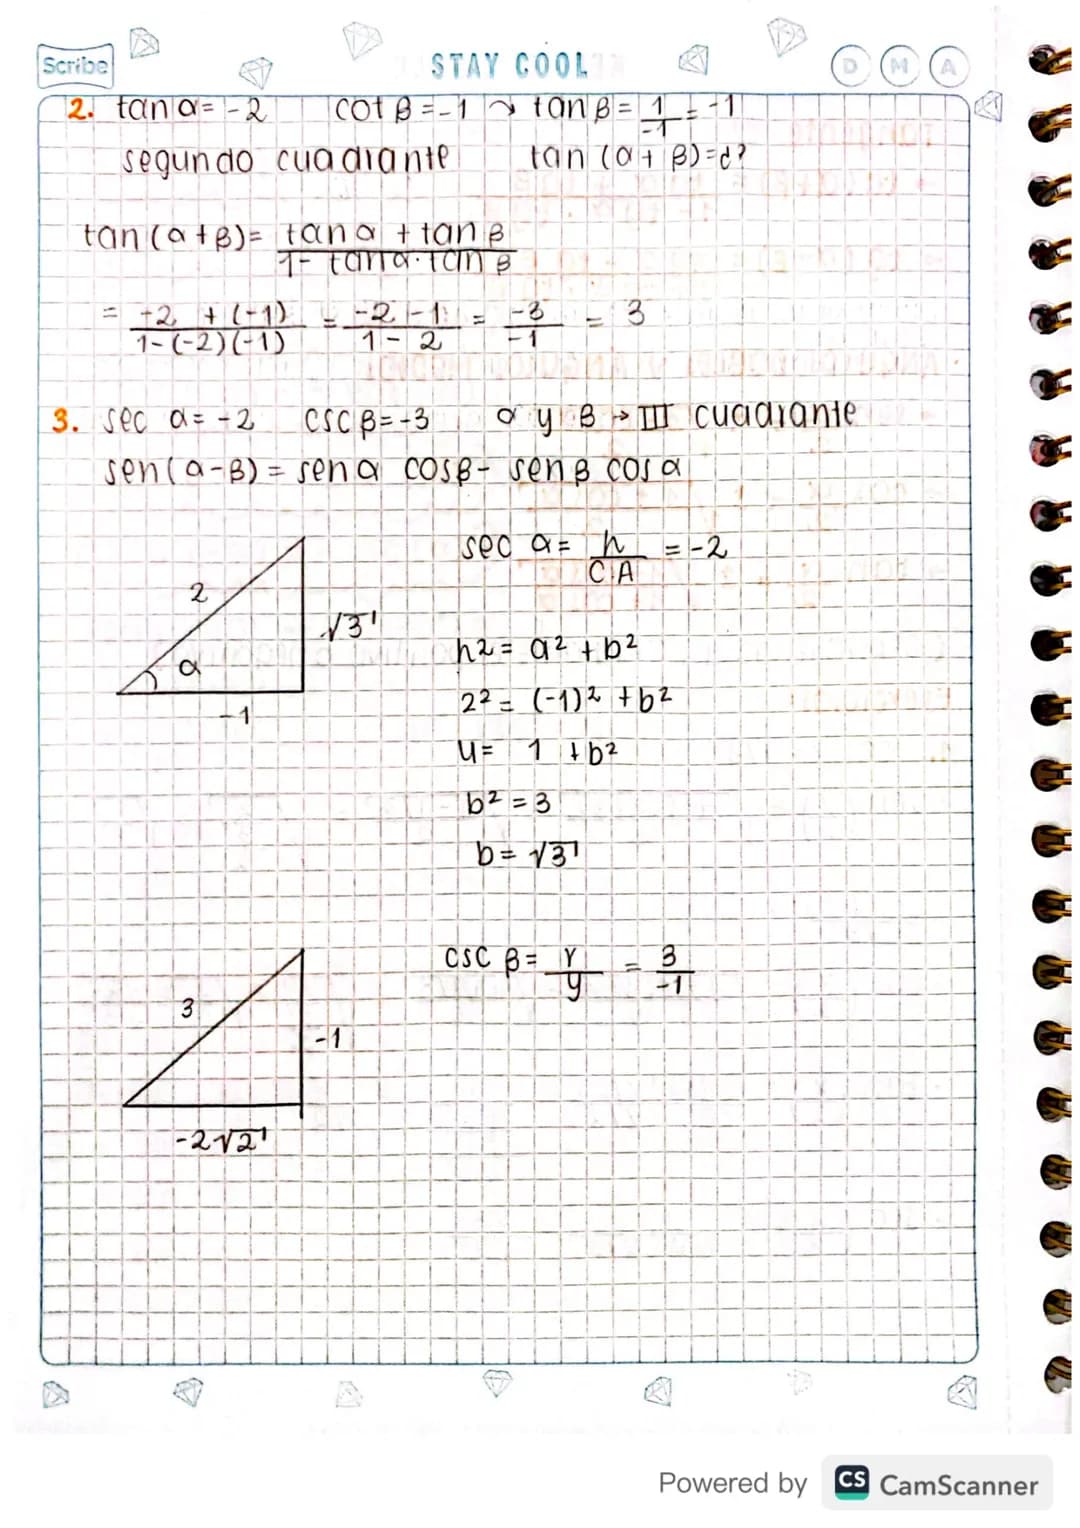 Scribe
STAY COOL
D M A
2. tan α = -2 cot β = -1 → tan β = 1/-1 = -1
segundo cuadrante tan (α + β) = ¿?
tan (α + β) = tan α + tan β / 1 - tan α · tan β
= -2 + (-1) / 1 - (-2)(-1) = -2 - 1 / 1 - 2 = -3 / -1 = 3
3. sec α = -2 csc β = -3 α y β → III cuadrante
sen (α - β) = sen α cos β - sen β cos α
2
α
√3
-1
sec α = h / C.A = -2
h² = a² + b²
2² = (-1)² + b²
4 = 1 + b²
b² = 3
b = √3
3
-1
-2√2
csc β = r / y = 3 / -1
Powered by CS CamScanner